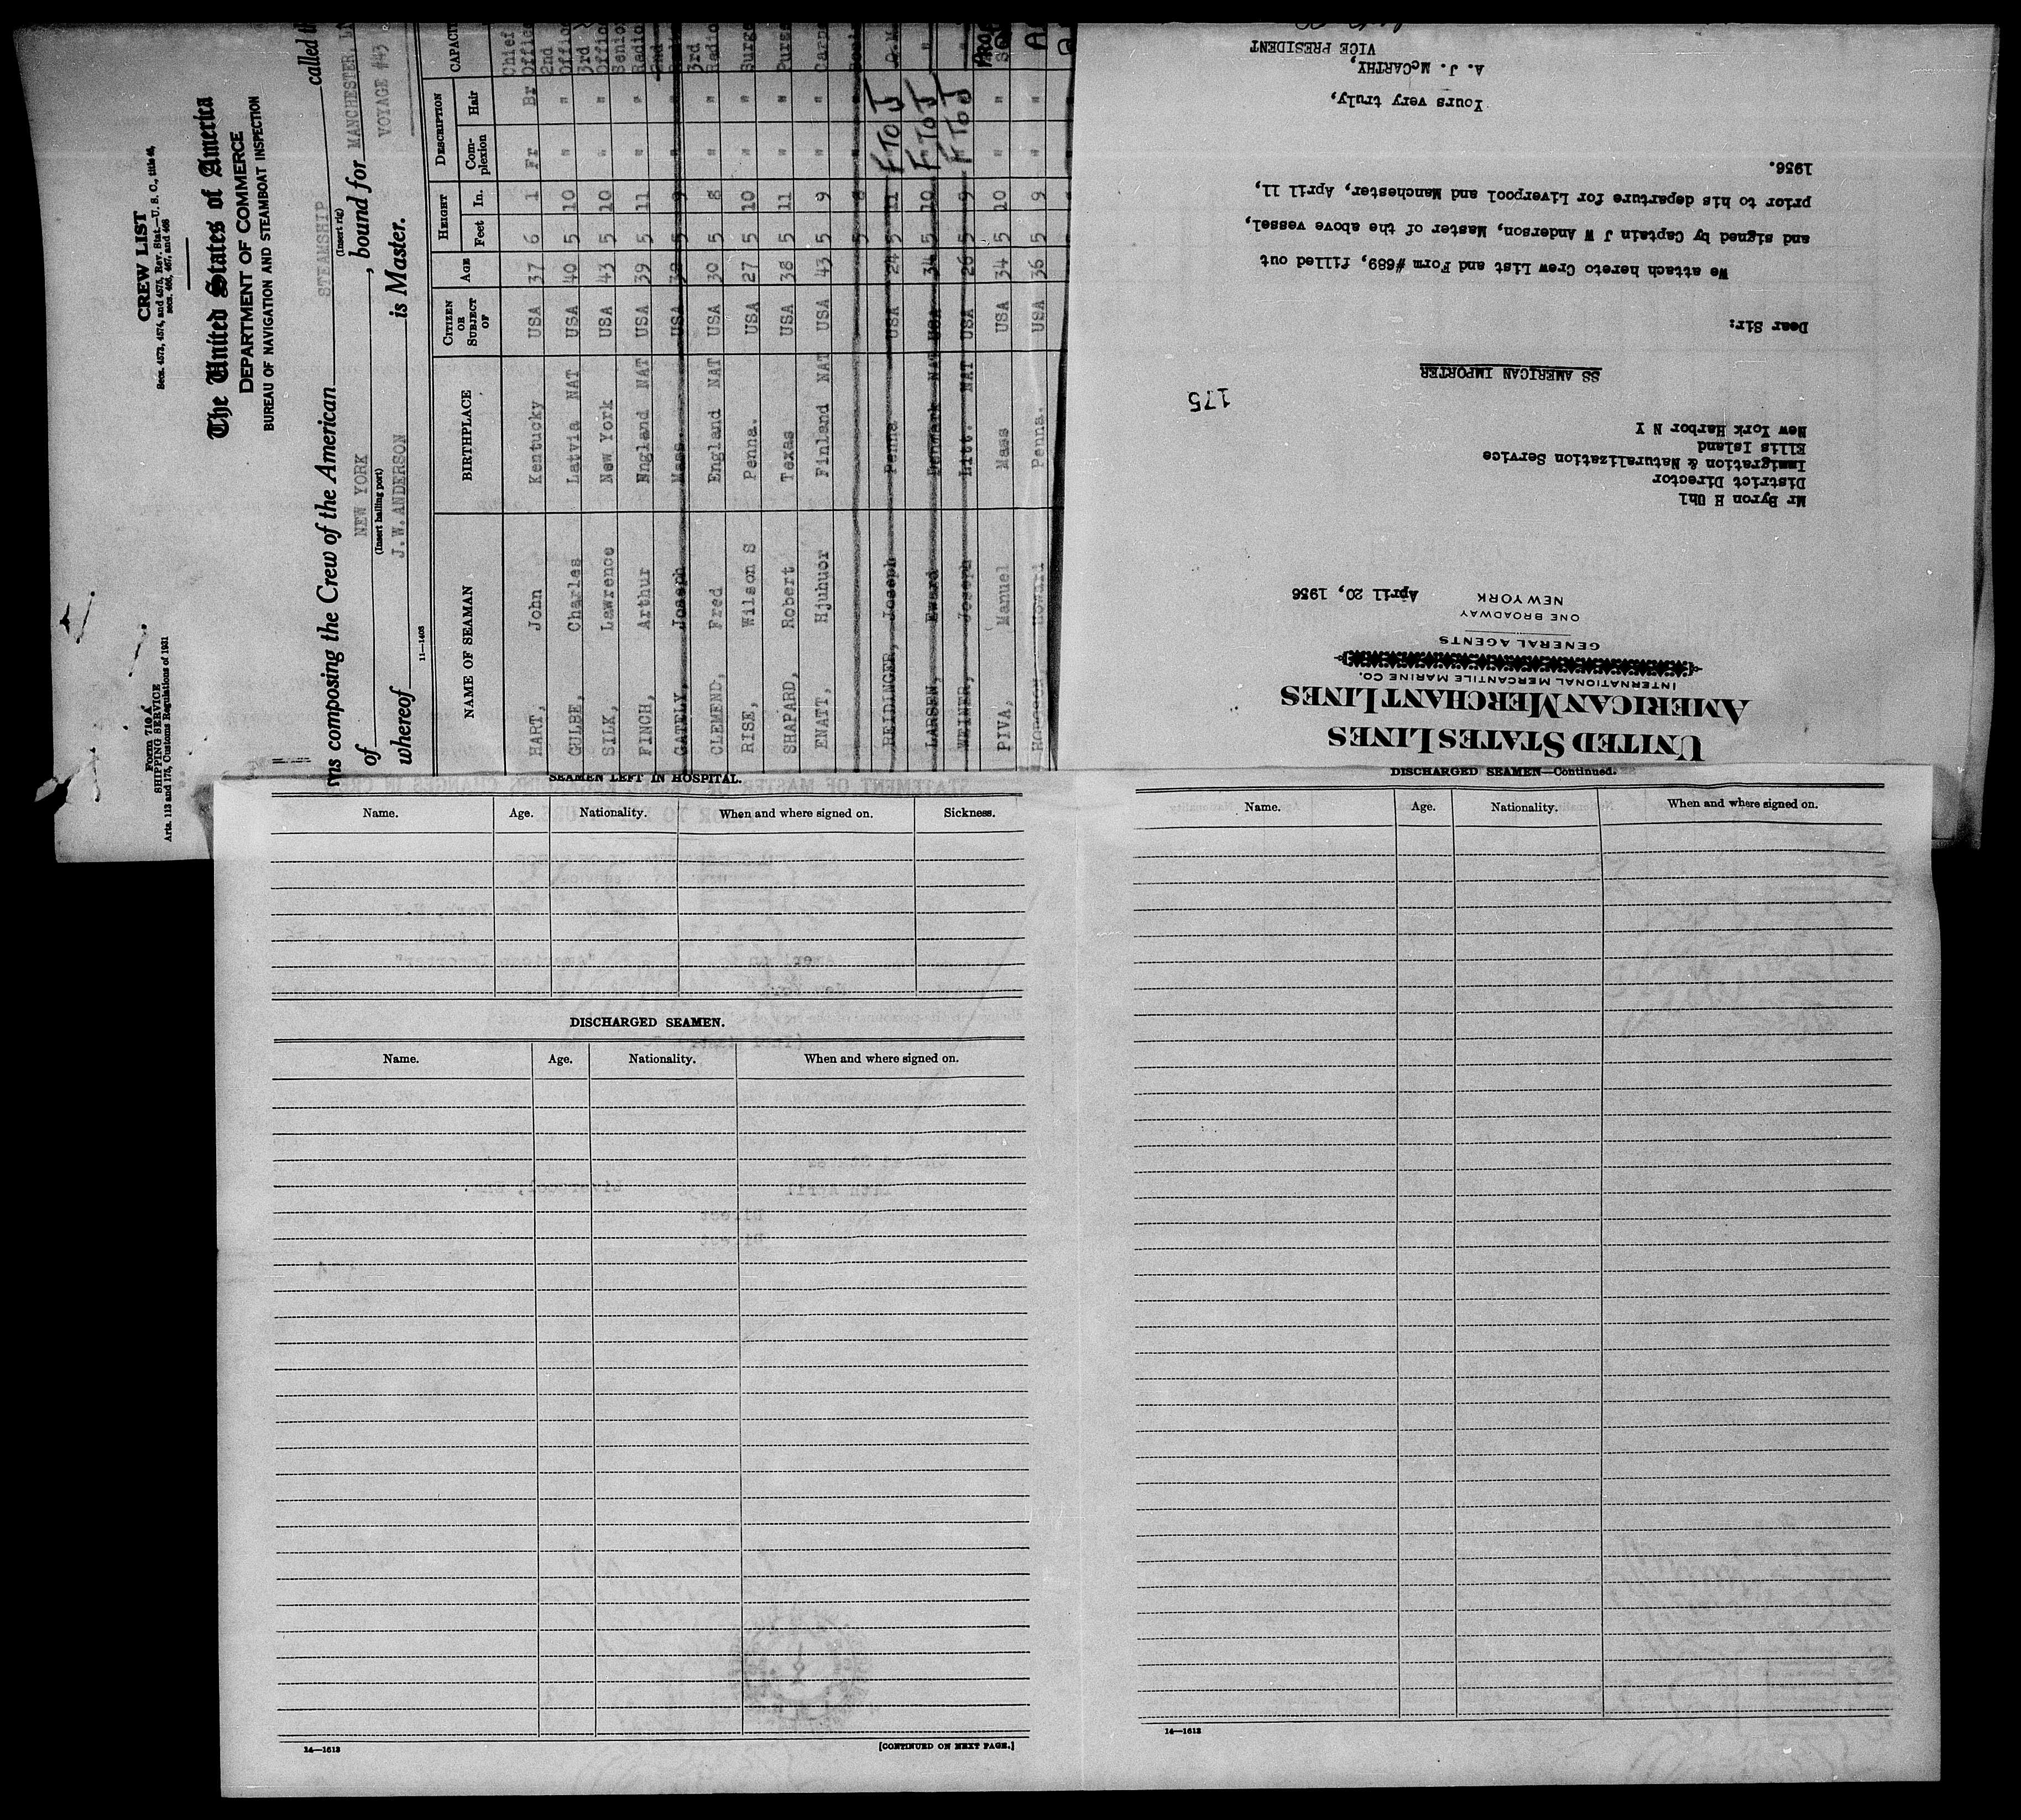 Form 710 A
SHIPPING SERVICE
Arts. 113 and 175, Customs Regulations of 1931
CREW LIST
Secs. 4573, 4574, and 4575, Rev. Stat.—U. S. C., title 46,
secs. 466, 467, and 468
The United States of America
DEPARTMENT OF COMMERCE
BUREAU OF NAVIGATION AND STEAMBOAT INSPECTION
composing the Crew of the American STEAMSHIP called
(Insert rig)
of NEW YORK, bound for MANCHESTER,
(Insert hailing port) VOYAGE #43
whereof J.W. ANDERSON is Master.
11—1405
NAME OF SEAMAN BIRTHPLACE CITIZEN OR SUBJECT OF AGE HEIGHT DESCRIPTION
Feet In. Complexion Hair
HART, John Kentucky USA 37 6 1 Fr Br Chief
GULBE, Charles Latvia NAT USA 40 5 10 " " 2nd
SILK, Lawrence New York USA 43 5 10 " " 3rd
FINCH, Arthur England NAT USA 39 5 11 " "
GATELY, Joseph Mass. USA 5 9 " "
CLEMEND, Fred England NAT USA 30 5 8 " " 3rd
RISE, Wilson S Penna. USA 27 5 10 " "
SHAPARD, Robert Texas USA 38 5 11 " "
ENATT, Hjuhuor Finland NAT USA 43 5 9 " "
REIDINGER, Joseph Penna USA 24 5 11 F To J
LARSEN, Eward Denmark NAT USA 34 5 10 F To J "
WEINER, Joseph Litt. NAT USA 26 5 9 F To J "
PIVA, Manuel Mass USA 34 5 10 " "
Howard Penna. USA 36 5 9 " "
UNITED STATES LINES
AMERICAN MERCHANT LINES
INTERNATIONAL MERCANTILE MARINE CO.
GENERAL AGENTS
ONE BROADWAY
NEW YORK
April 20, 1936
Mr Byron H Uhl
District Director
Immigration & Naturalization Service
Ellis Island
New York Harbor N Y
175
SS AMERICAN IMPORTER
Dear Sir:
We attach hereto Crew List and Form #689, filled out
and signed by Captain J W Anderson, Master of the above vessel,
prior to his departure for Liverpool and Manchester, April 11,
1936.
Yours very truly,
A. J. McCARTHY,
VICE PRESIDENT
SEAMEN LEFT IN HOSPITAL.
Name. Age. Nationality. When and where signed on. Sickness.
DISCHARGED SEAMEN.
Name. Age. Nationality. When and where signed on.
14—1613
[CONTINUED ON NEXT PAGE.]
DISCHARGED SEAMEN—Continued.
Name. Age. Nationality. When and where signed on.
14—1613